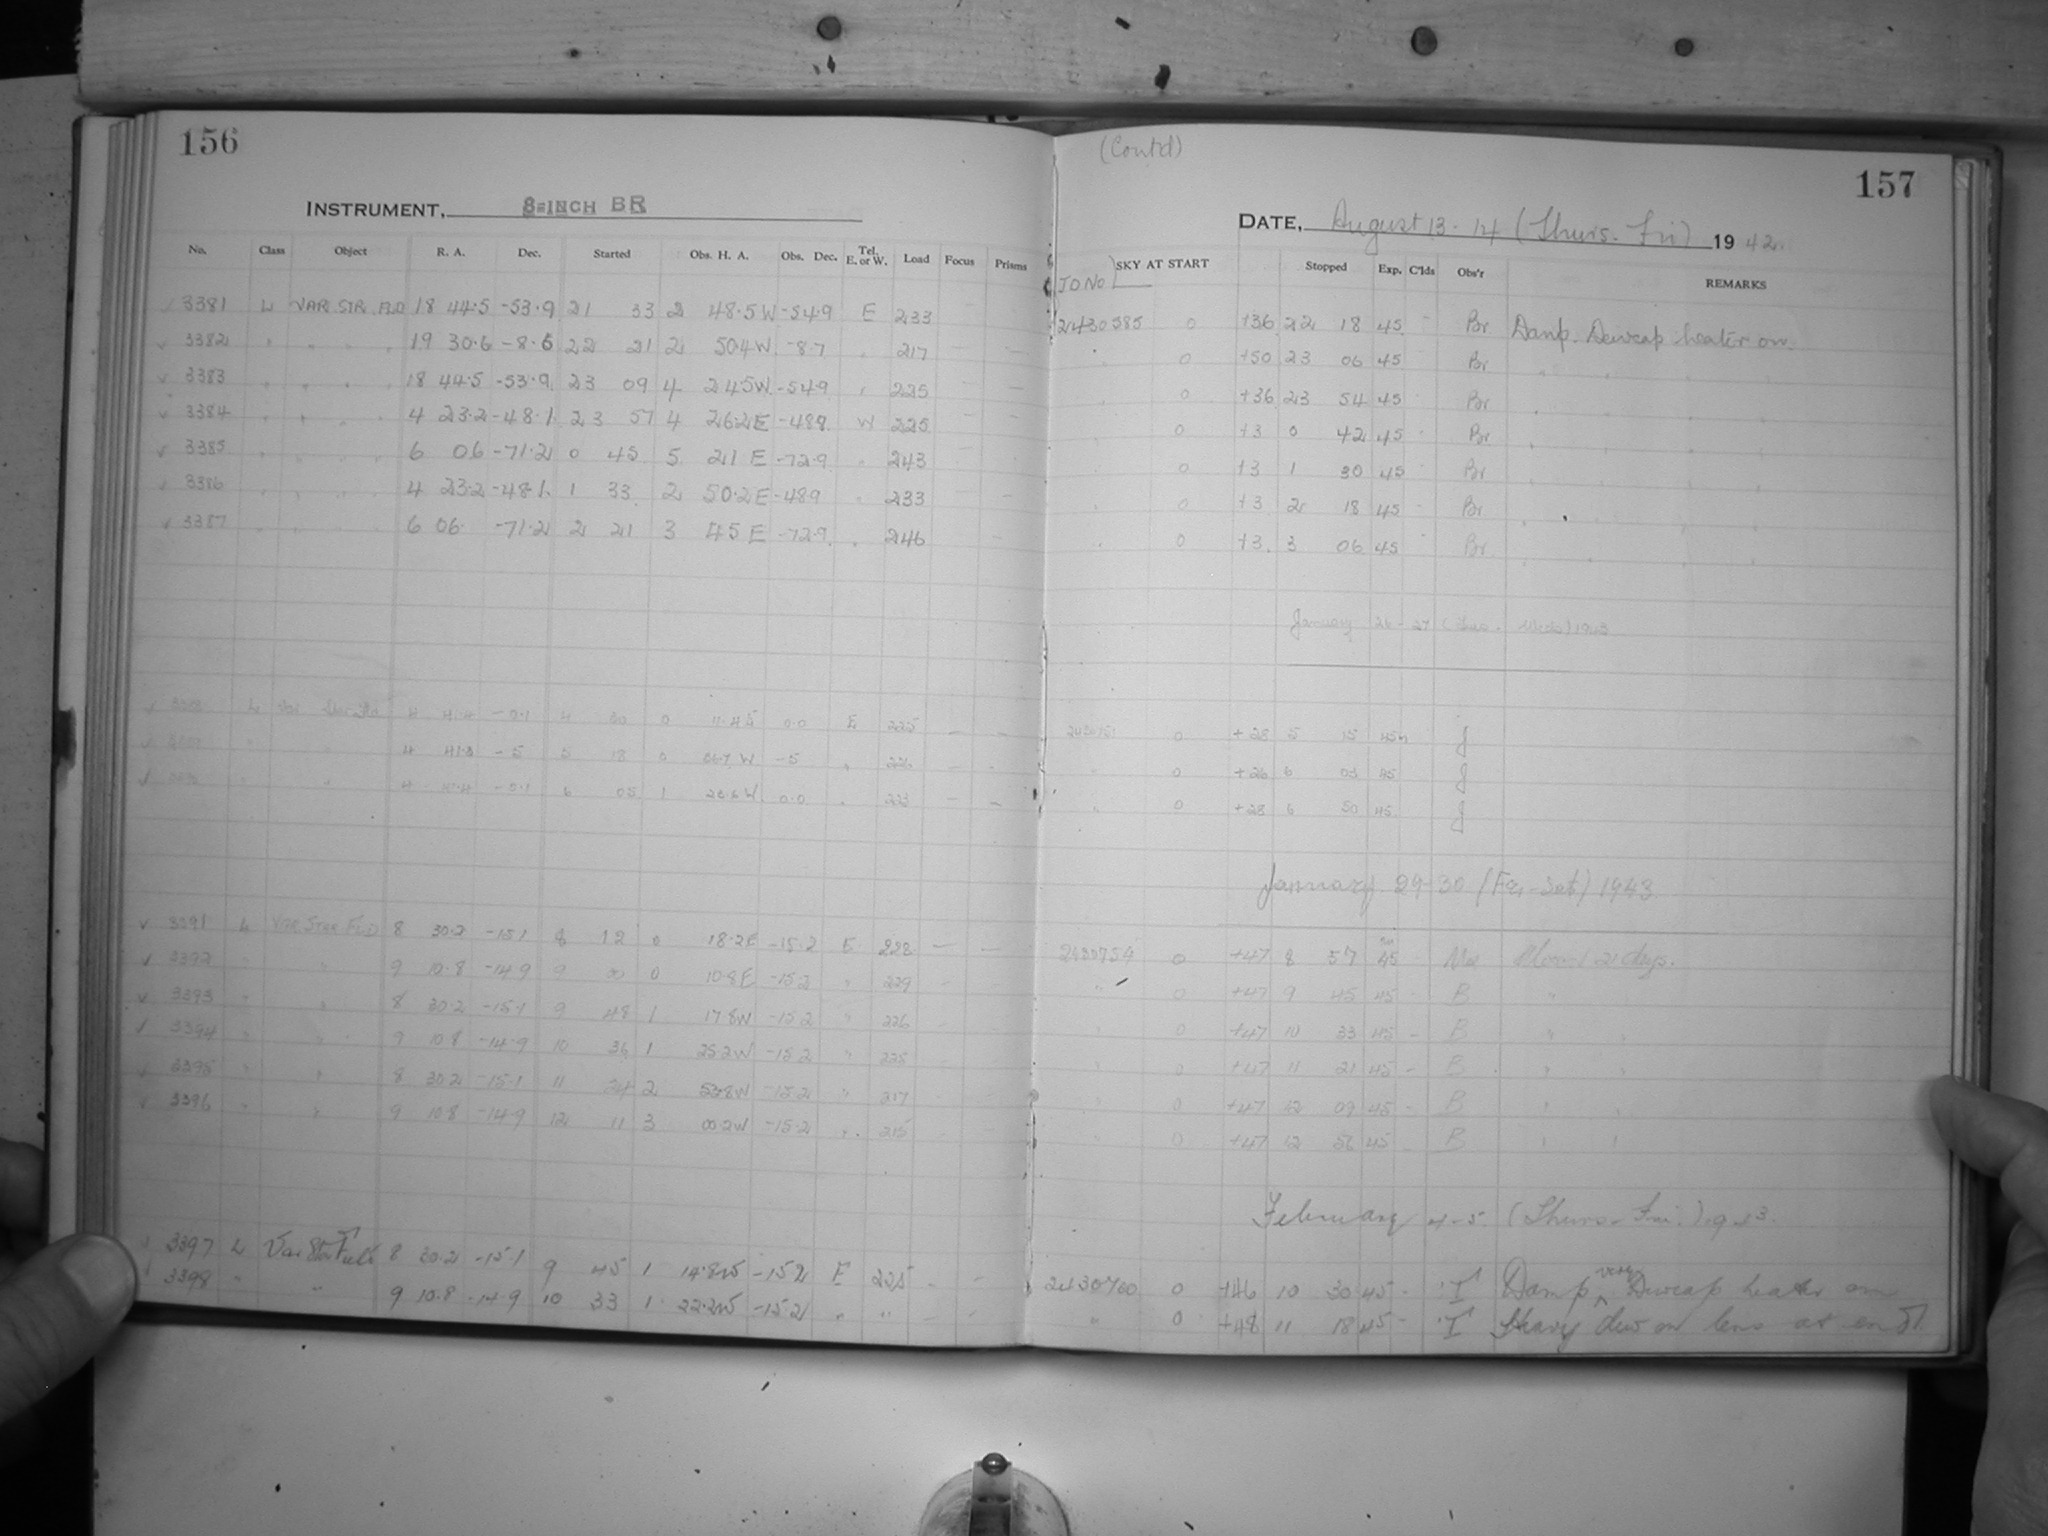 156
INSTRUMENT, 8=INCH BR
No. Class Object R. A. Dec. Started Obs. H. A. Obs. Dec. Tel. E. or W. Load Focus Prisms
3381 L VAR. STR. FLD 18 44.5 -53.9 21 33 2 48.5 W -54.9 E 233
3382 " " " " 19 30.6 -8.6 22 21 2 50.4 W -8.7 " 217
3383 " " " " 18 44.5 -53.9 23 09 4 24.5 W -54.9 " 225
3384 " " " " 4 23.2 -48.1 23 57 4 26.2 E -48.9 W 225
3385 " " " " 6 06 -71.2 0 45 5 21 E -72.9 " 243
3386 " " " " 4 23.2 -48.1 1 33 2 50.2 E -48.9 " 233
3387 " " " " 6 06 -71.2 2 21 3 45 E -72.9 " 246
L Var 4 -0.1 4 30 0 11.4 E 0.0 E 225 — —
4 41.3 -5 5 18 0 06.7 W -5 " 226
4 -0.1 6 05 1 W 0.0 " 223 — —
3391 L VAR STAR FLD 8 30.2 -15.1 8 12 0 18.2 E -15.2 E 228 — —
3392 " " 9 10.8 -14.9 9 00 0 10.8 E -15.2 " 229
3393 " " 8 30.2 -15.1 9 48 1 17.8 W -15.2 " 226
3394 " " 9 10.8 -14.9 10 36 1 25.2 W -15.2 " 225
3395 " " 8 30.2 -15.1 11 24 2 53.8 W -15.2 " 217
3396 " " 9 10.8 -14.9 12 11 3 00.2 W -15.2 " 215
3397 L Var Star Field 8 30.2 -15.1 9 45 1 14.8 W -15.2 E 225 - -
3398 " " 9 10.8 -14.9 10 33 1 22.2 W -15.2 " " - -
(Contd)
157
DATE, August 13-14 (Thurs. Fri) 1942
JD No SKY AT START Stopped Exp. C'lds Obs'r REMARKS
2430585 0 +36 22 18 45 - Br Damp. Dewcap heater on.
" 0 +50 23 06 45 Br " " " "
" 0 +36 23 54 45 Br " " " "
" 0 +3 0 42 45 Br " " " "
" 0 +3 1 30 45 Br " " " "
" 0 +3 2 18 45 Br " " " "
" 0 +3 3 06 45 Br " " " "
January 26-27 (Tues. Weds) 1943
0 +28 5 15 45 J
" 0 +26 6 03 45 J
" 0 +28 6 50 45 J
January 29-30 (Fri-Sat) 1943
2430754 0 +47 8 57 45 Moon 21 days.
" 0 +47 9 45 45 - B "
" 0 +47 10 33 45 - B " "
" 0 +47 11 21 45 - B " "
" 0 +47 12 09 45 - B " "
" 0 +47 12 56 45 - B " "
February 4-5 (Thurs-Fri.) 1943.
2430760 0 +46 10 30 45 - T Damp very Dewcap heater on
" 0 +48 11 18 45 - T Heavy dew on lens at end.